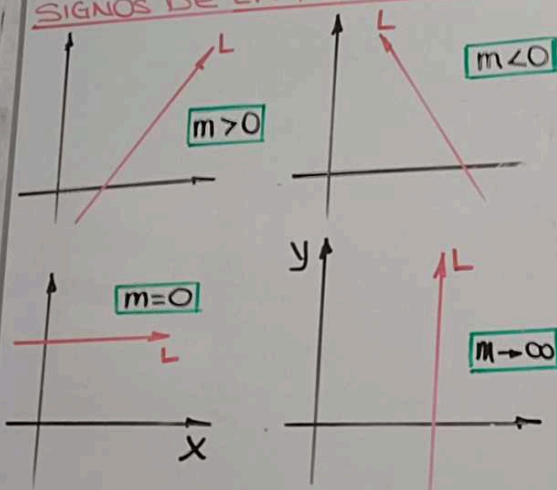 SIGNOS DE
L
m>0
L
m<0
m=0
L
X
y
L
m→∞